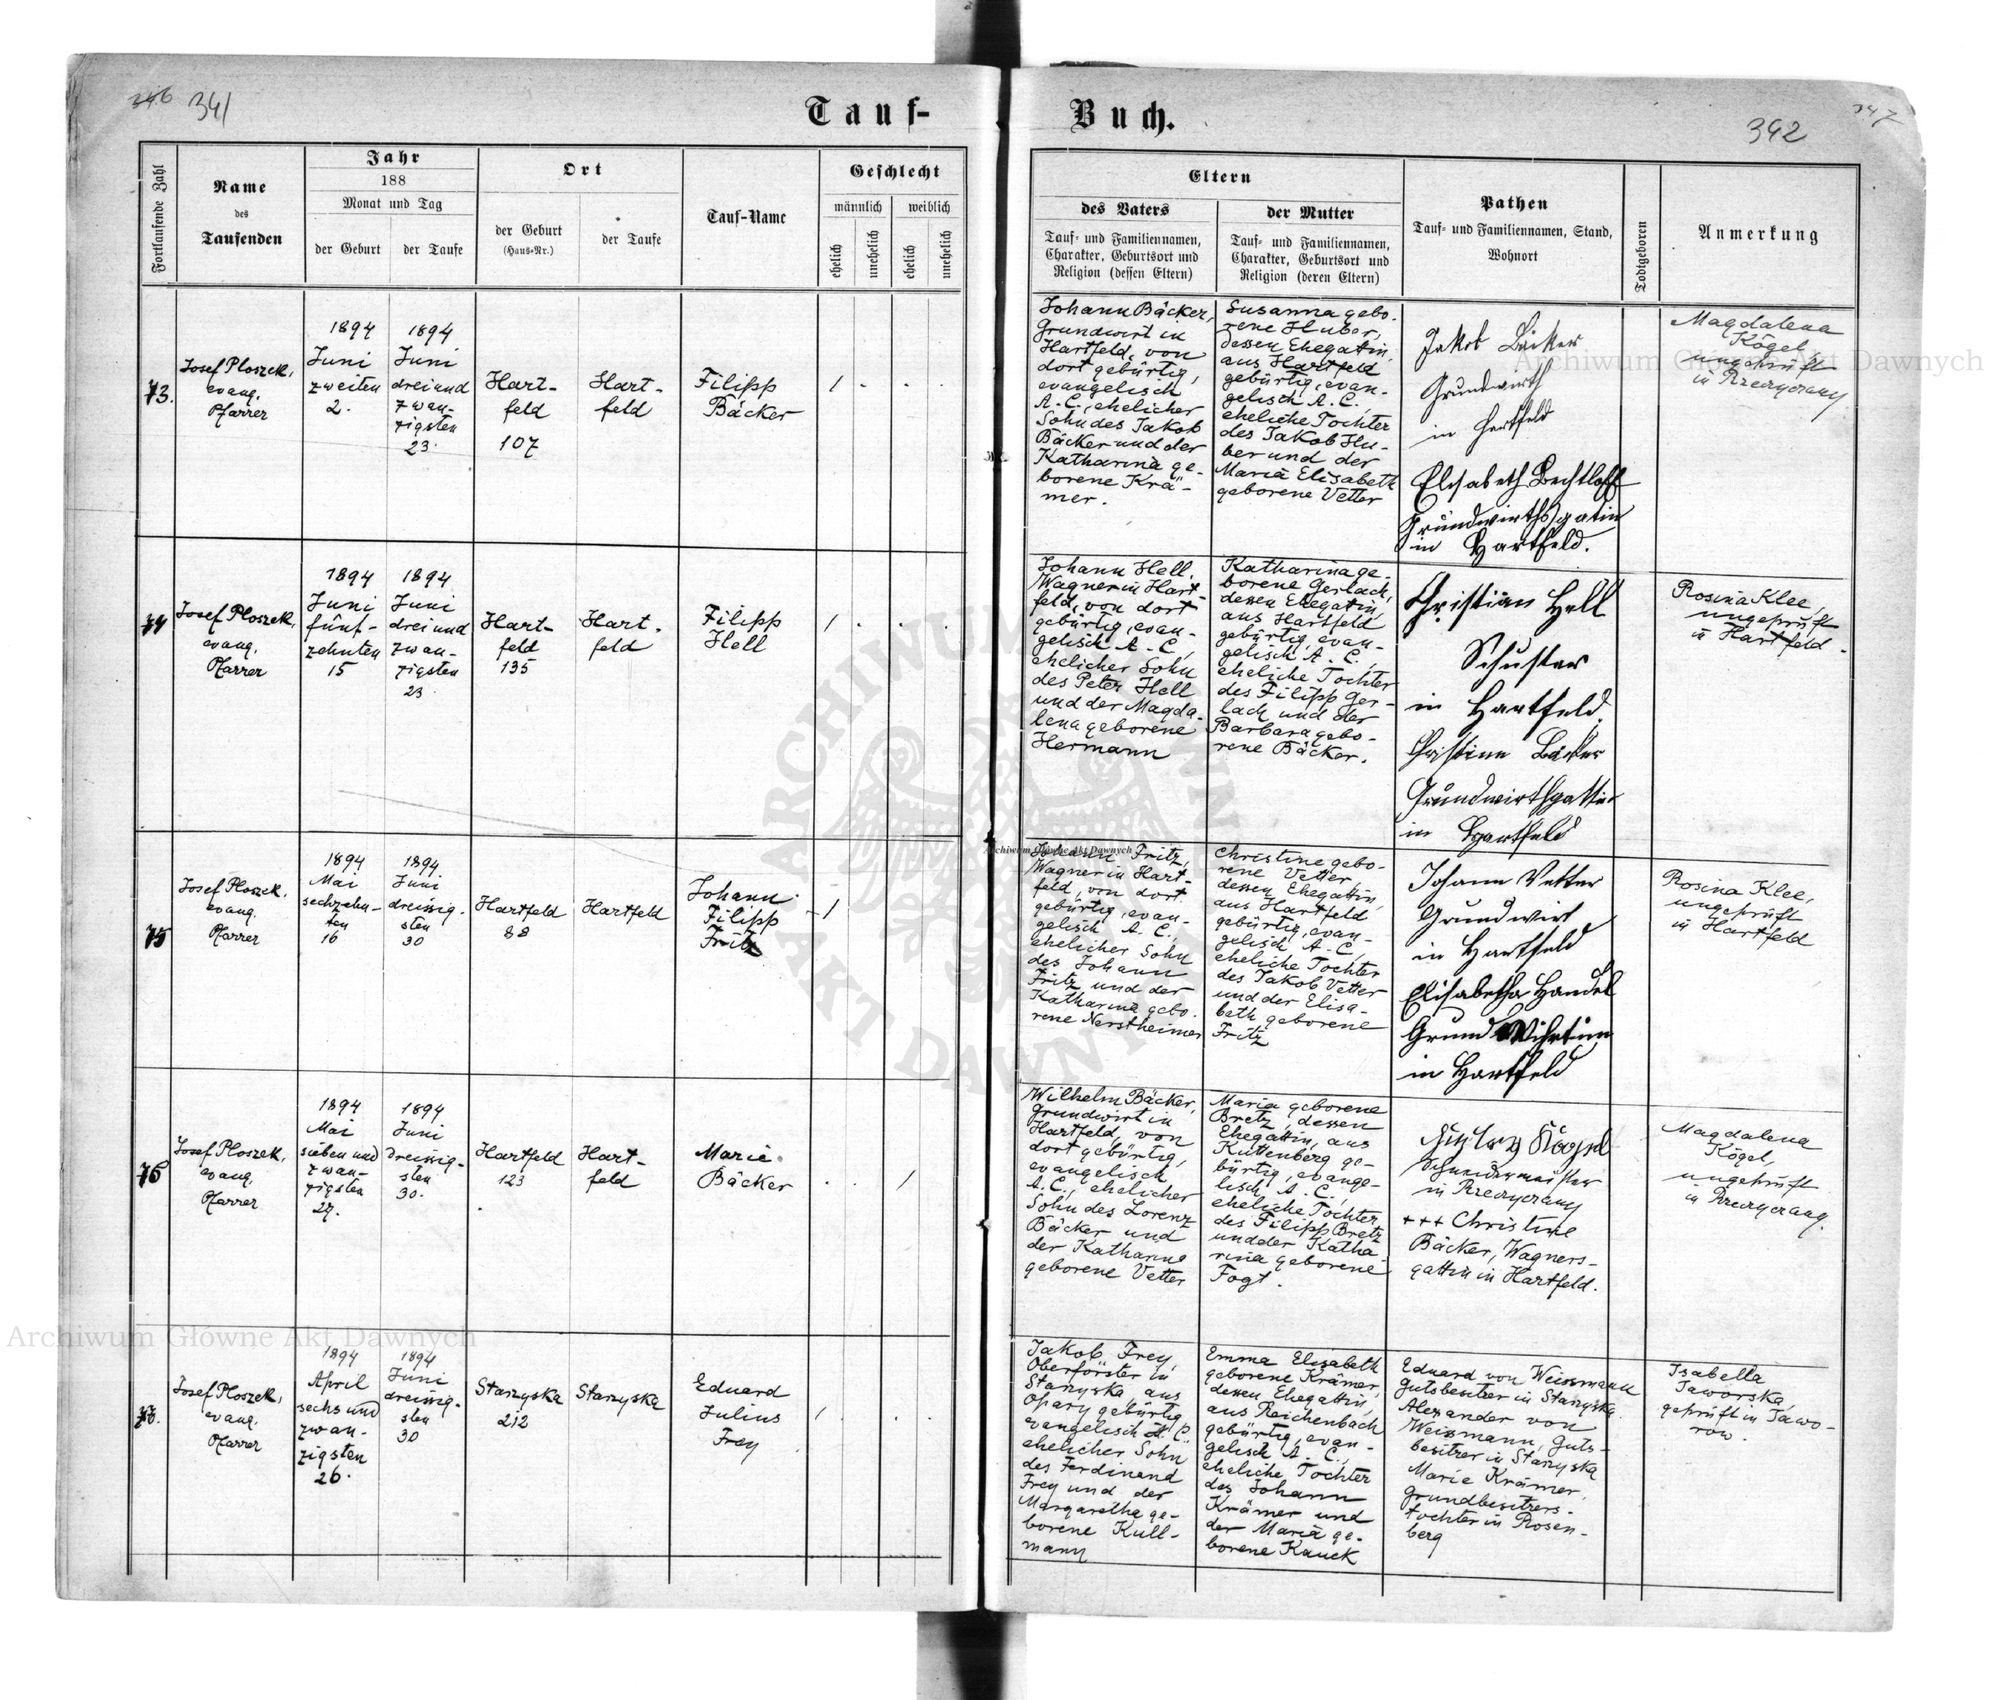 346 341
Tauf-
Buch.
392
347
Fortlaufende Zahl
Name
des
Taufenden
Jahr
188
Monat und Tag
der Geburt
der Taufe
Ort
der Geburt
(Haus-Nr.)
der Taufe
Tauf-Name
Geschlecht
männlich
weiblich
ehelich
unehelich
ehelich
unehelich
Eltern
des Vaters
Tauf- und Familiennamen,
Charakter, Geburtsort und
Religion (dessen Eltern)
der Mutter
Tauf- und Familiennamen,
Charakter, Geburtsort und
Religion (deren Eltern)
Pathen
Tauf- und Familiennamen, Stand,
Wohnort
Todtgeboren
Anmerkung
73.
Josef Ploszek,
evang.
Pfarrer
1894
Juni
zweiten
2.
1894
Juni
drei und
zwan-
zigsten
23.
Hart-
feld
107
Hart-
feld
Filipp
Bäcker
/
Johann Bäcker,
Grundwirt in
Hartfeld, von
dort gebürtig,
evangelisch
A. C., ehelicher
Sohn des Jakob
Bäcker und der
Katharina ge-
borene Krä-
mer.
Susanna gebo-
rene Huber,
dessen Ehegatin,
aus Hartfeld
gebürtig, evan-
gelisch A. C.
eheliche Tochter
des Jakob Hu-
ber und der
Maria Elisabeth
geborene Vetter
Jakob Bäcker
Grundwirth
in Hartfeld
Elisabeth Bechtloff
Grundwirthsgatin
in Hartfeld.
Magdalena
Kögel,
ungeprüft
in Rzeczyczany
74
Josef Ploszek,
evang.
Pfarrer
1894
Juni
fünf-
zehnten
15
1894
Juni
drei und
zwan-
zigsten
23.
Hart-
feld
135
Hart-
feld
Filipp
Hell
/
Johann Hell,
Wagner in Hart-
feld, von dort
gebürtig, evan-
gelisch A. C.,
ehelicher Sohn
des Peter Hell
und der Magda-
lena geborene
Hermann
Katharina ge-
borene Gerlach,
dessen Ehegatin,
aus Hartfeld
gebürtig, evan-
gelisch A. C.,
eheliche Tochter
des Filipp Ger-
lach und der
Barbara gebo-
rene Bäcker.
Christian Hell
Schuster
in Hartfeld.
Christine Bäcker
Grundwirthgattin
in Hartfeld
Rosina Klee,
ungeprüft
in Hartfeld.
75
Josef Ploszek,
evang.
Pfarrer
1894
Mai
sechzehn-
ten
16
1894
Juni
dreissig-
sten
30
Hartfeld
88
Hartfeld
Johann
Filipp
Fritz
/
Johann Fritz,
Wagner in Hart-
feld, von dort
gebürtig, evan-
gelisch A. C.,
ehelicher Sohn
des Johann
Fritz und der
Katharina gebo-
rene Nerstheimer
Christine gebo-
rene Vetter
dessen Ehegattin,
aus Hartfeld
gebürtig, evan-
gelisch A. C.,
eheliche Tochter
des Jakob Vetter
und der Elisa-
beth geborene
Fritz
Johann Vetter
Grundwirt
in Hartfeld
Elisabetha Handel
Grund Wihrtinn
in Hartfeld
Rosina Klee,
ungeprüft
in Hartfeld
76
Josef Ploszek,
evang.
Pfarrer
1894
Mai
sieben und
zwan-
zigsten
27.
1894
Juni
dreissig-
sten
30.
Hartfeld
123
Hart-
feld
Marie
Bäcker
/
Wilhelm Bäcker,
Grundwirt in
Hartfeld, von
dort gebürtig,
evangelisch
A. C., ehelicher
Sohn des Lorenz
Bäcker und
der Katharina
geborene Vetter
Maria geborene
Bretz, dessen
Ehegattin, aus
Kuttenberg ge-
bürtig, evange-
lisch A. C.,
eheliche Tochter
des Filipp Bretz
und der Katha-
rina geborene
Fogt.
Kögel
Schneidermeister
in Rzeczyczany
+++ Christine
Bäcker, Wagners-
gattin in Hartfeld.
Magdalena
Kögel,
ungeprüft
in Rzeczyczany.
Josef Ploszek,
evang.
Pfarrer
1894
April
sechs und
zwan-
zigsten
26.
1894
Juni
dreissig-
sten
30
Starzyska
212
Starzyska
Eduard
Julius
Frey
/
Jakob Frey,
Oberförster in
Starzyska, aus
Opary gebürtig,
evangelisch A. C.
ehelicher Sohn
des Ferdinand
Frey und der
Margaretha ge-
borene Kull-
mann
Emma Elisabeth
geborene Krämer,
dessen Ehegattin,
aus Reichenbach
gebürtig, evan-
gelisch A. C.,
eheliche Tochter
des Johann
Krämer und
der Maria ge-
borene Kauck
Eduard von Weissmann
Gutsbesitzer in Starzyska.
Alexander von
Weissmann, Guts-
besitzer in Starzyska
Marie Krämer,
Grundbesitzers-
tochter in Rosen-
berg
Isabella
Jaworska,
geprüft in Jawo-
row.
Archiwum Główne Akt Dawnych
Archiwum Główne Akt Dawnych
Archiwum Główne Akt Dawnych
ARCHIWUM GŁÓWNE AKT DAWNYCH